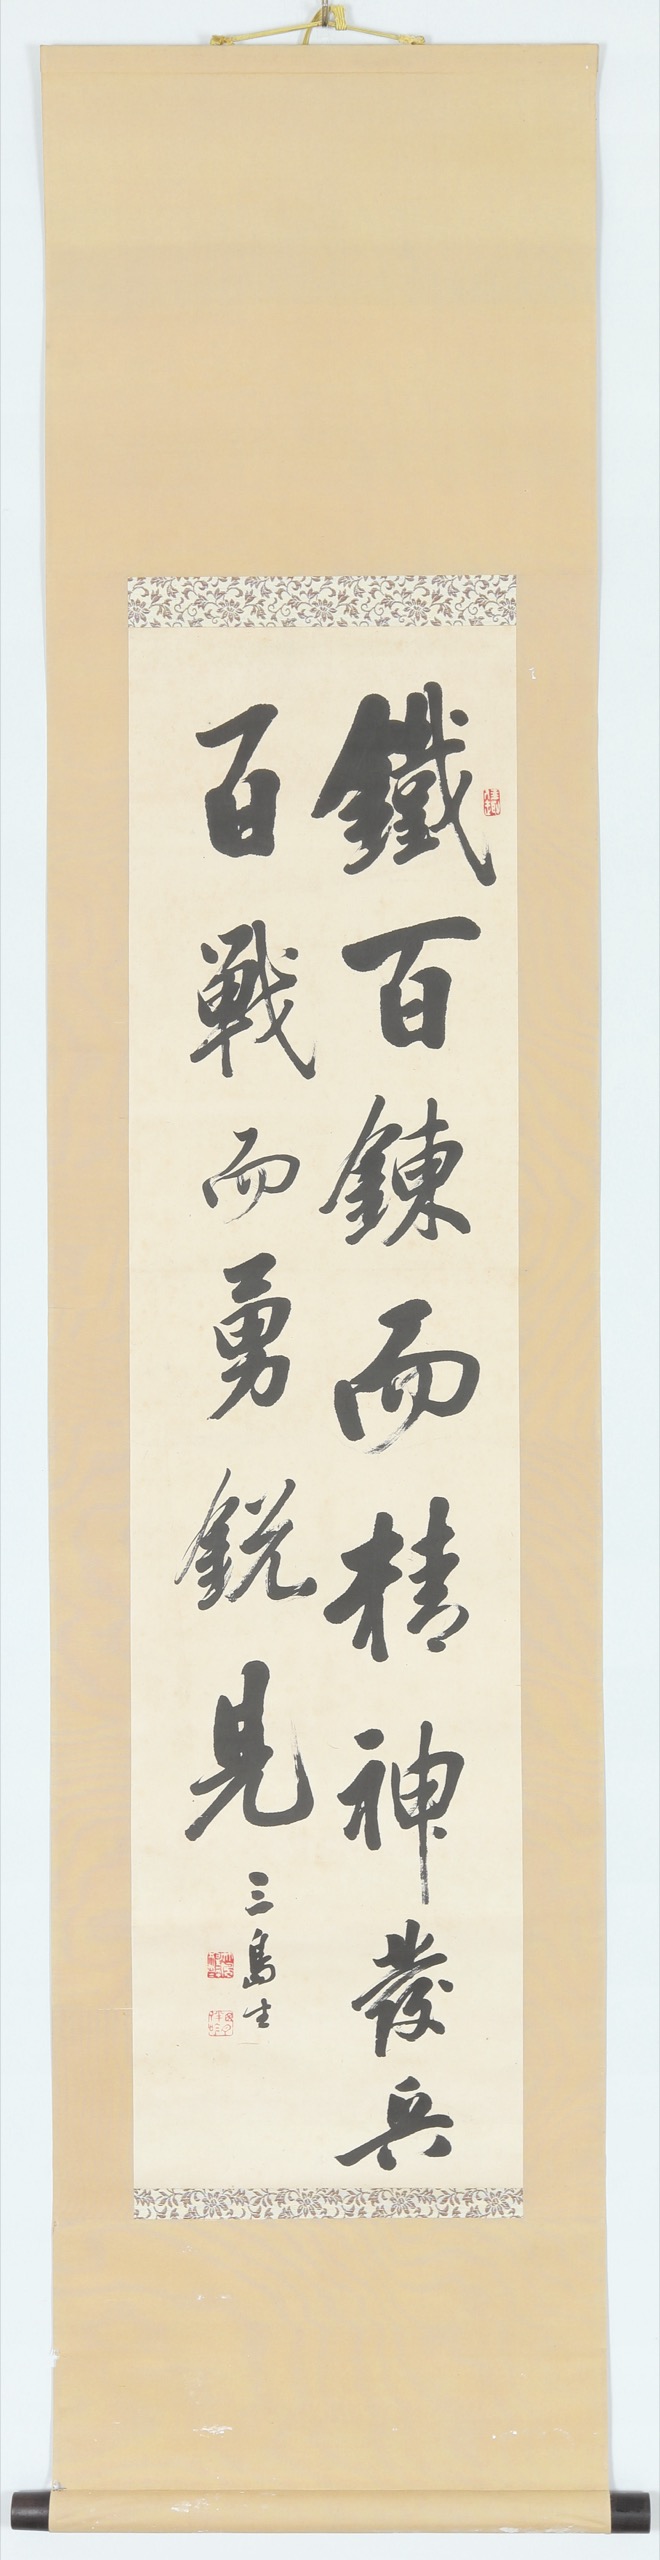 鐵百錬而精神發兵
百戰而勇鋭見
三島生